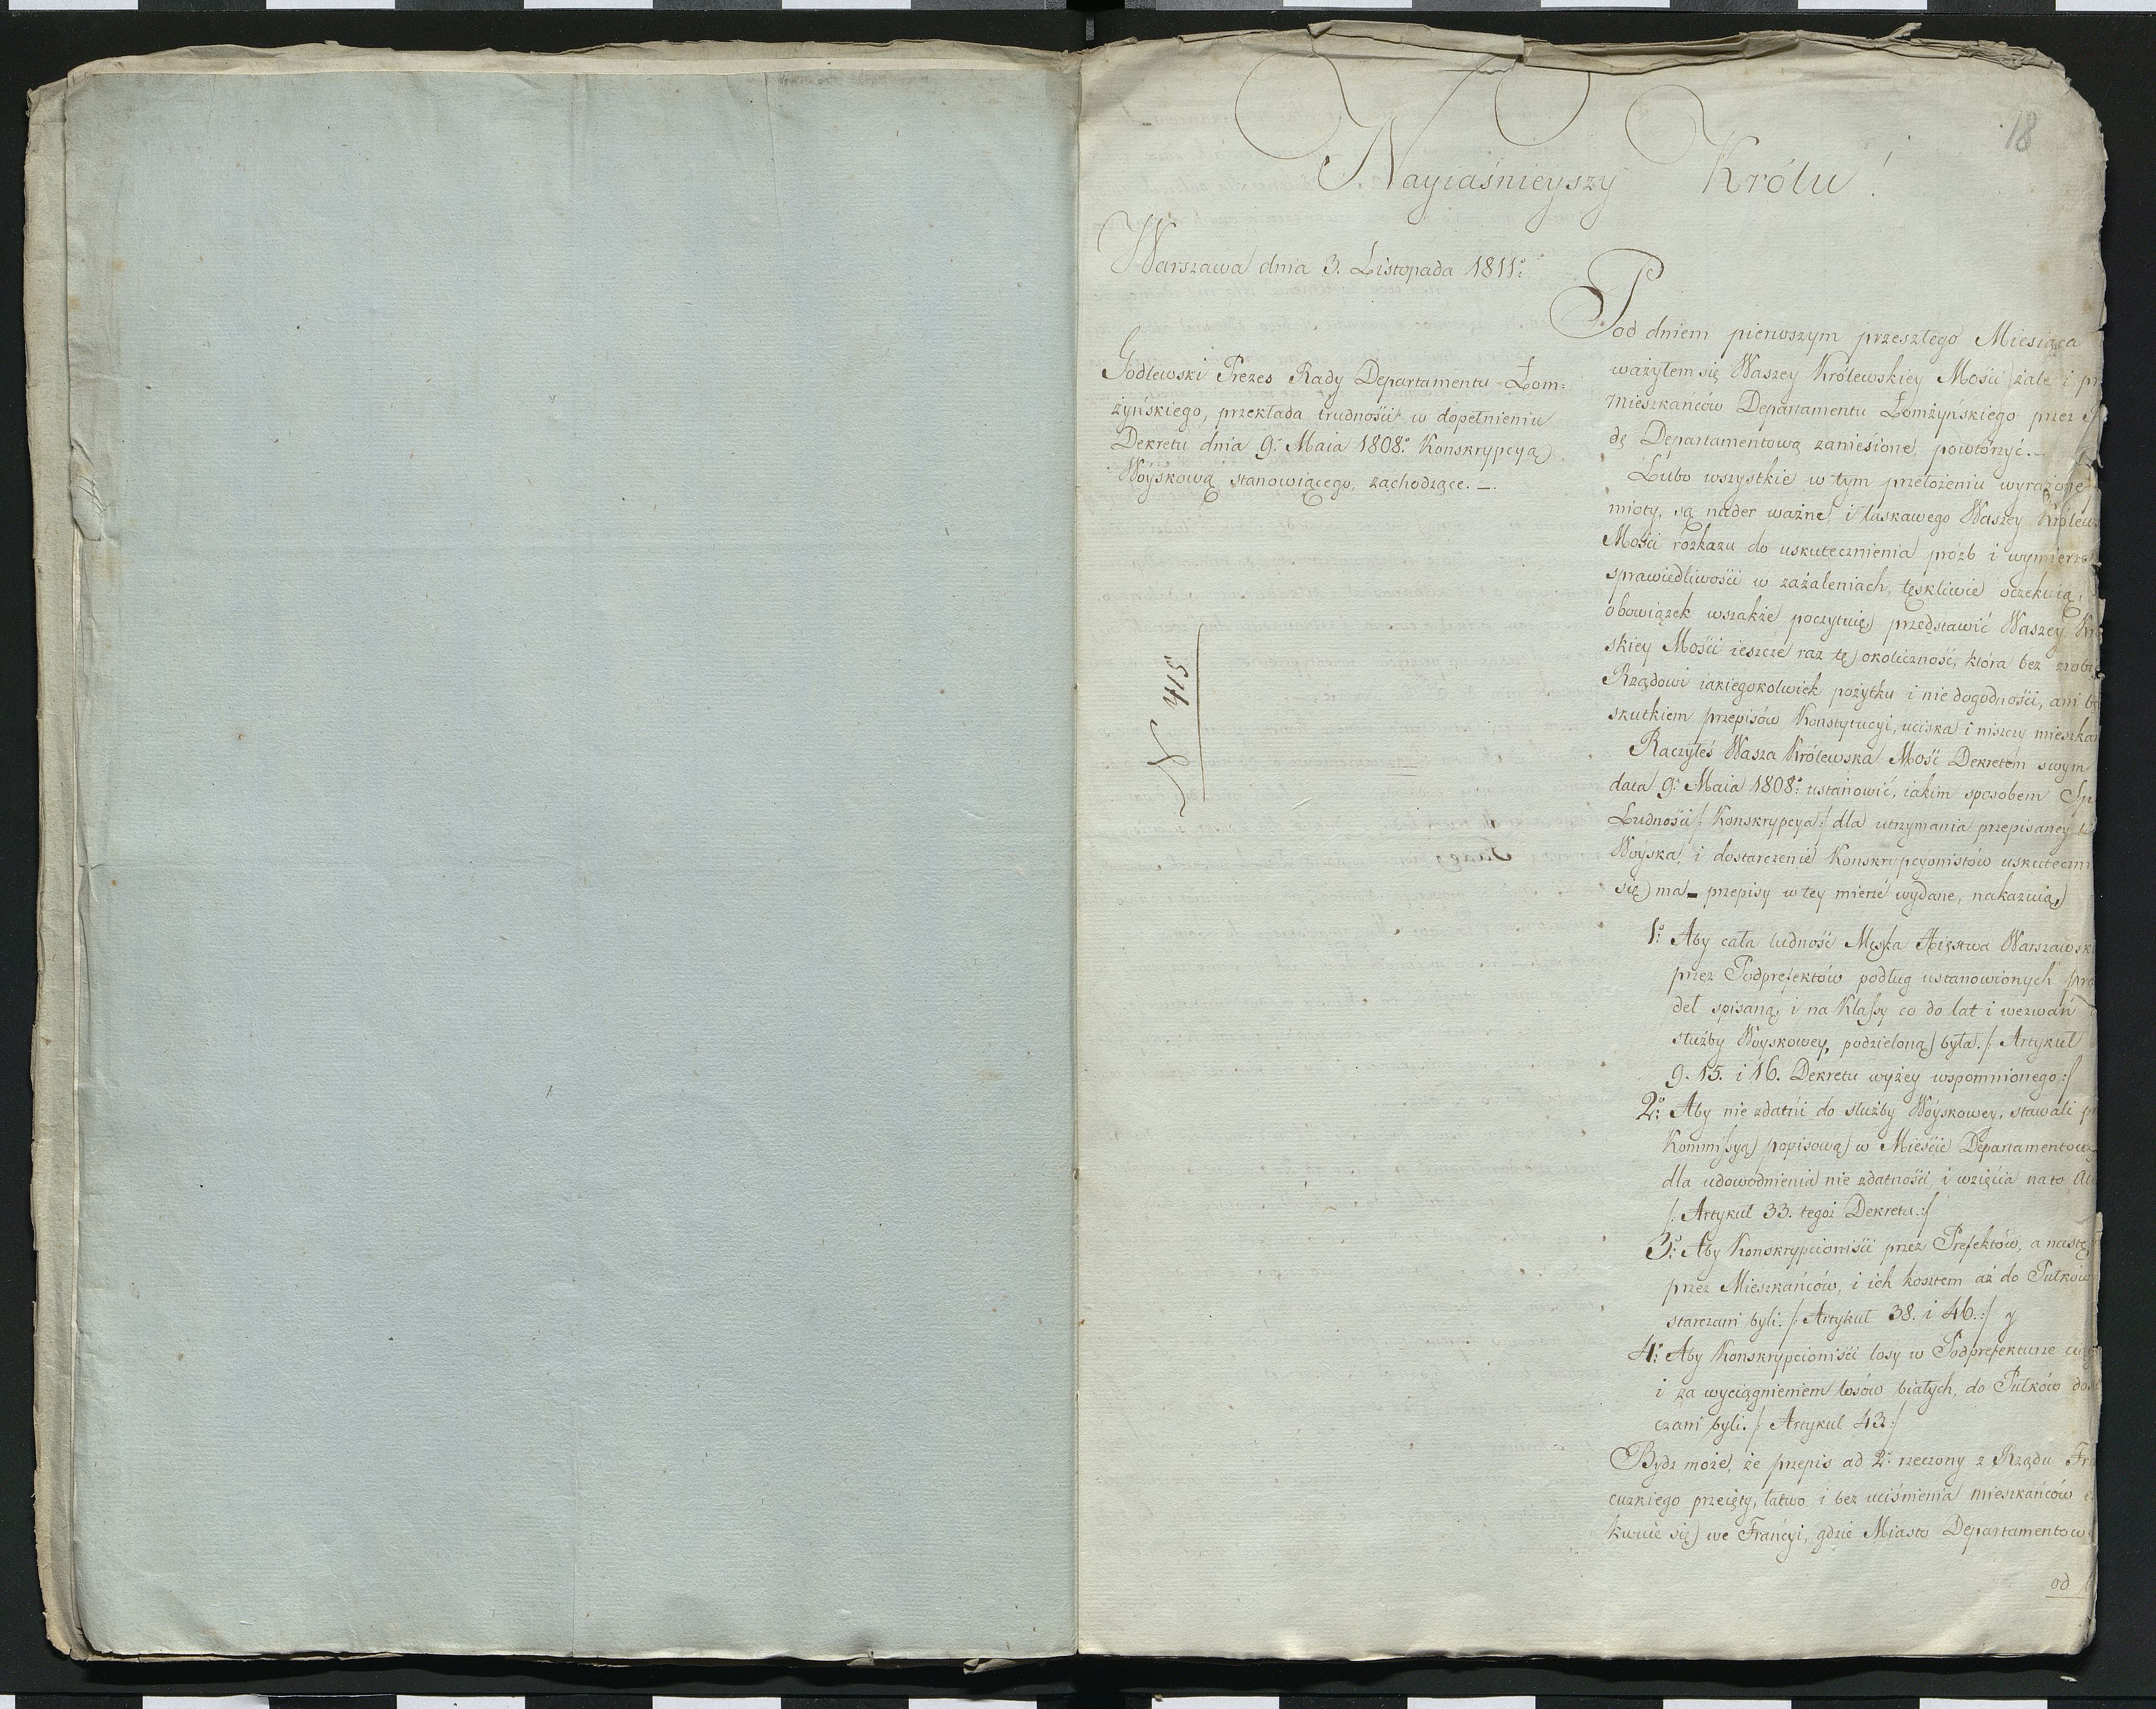 18
Nayiaśnieyszy Królu!
Warszawa dnia 3. Listopada 1811º
Godlewski Prezes Rady Departamentu Łom=
żyńskiego, przekłada trudności w dopełnieniu
Dekretu dnia 9º Maia 1808º Konskrypcyą
Woyskową stanowiącego, zachodzące. –.
N 415
Pod dniem pierwszym przeszłego Miesiąca
ważyłem się Waszey Królewskiey Mości żale i pr
Mieszkańców Departamentu Łomżyńskiego przez
dę Departamentową zaniesione, powtórzyć. –
Lubo wszystkie w tym przełożeniu wyrażone
mioty, są nader ważne, i łaskawego Waszey Królew
Mości rozkazu do uskutecznienia próżb i wymierze
sprawiedliwości w zażaleniach, tęskliwie oczekuią,
obowiązek wszakże poczytuię przedstawić Waszey Kró
skiey Mości ieszcze raz tę okoliczność, która bez zrobie
Rządowi iakiegokolwiek pożytku i nie dogodności, ani bę
skutkiem przepisów Konstytucyi, uciska i niszczy mieszka
Raczyłeś Wasza Królewska Mość Dekretem swym
data 9º Maia 1808º ustanowić, iakim sposobem Sp
Ludności /: Konskrypcya :/ dla utrzymania przepisaney
Woyska, i dostarczenie Konskrypcyonistów uskuteczni
się ma – przepisy w tey mierze wydane, nakazuią,
1º: Aby cała ludność Męska Xięstwa Warszawsk
przez Podprefektów podług ustanowionych pra
deł spisaną, i na Klassy co do lat i wezwań
służby Woyskowey, podzieloną była. /: Artykuł
9. 15. i 16. Dekretu wyżey wspomnionego :/
2º: Aby nie zdatni do służby Woyskowey, stawali pr
Kommissyą popisową w Mieście Departamentow
dla udowodnienia nie zdatności, i wzięcia na to
/: Artykuł 33. tegoż Dekretu :/
3º: Aby Konskrypcioniści przez Prefektów, a nastę
przez Mieszkańców, i ich kosztem aż do Pułków
starczani byli. /: Artykuł 38. i 46. :/ y
4º: Aby Konskrypcioniści losy w Podprefekturze ciąg
i za wyciągnieniem losów białych, do Pułków dos
czani byli. /: Artykuł 43 :/
Bydz może, że przepis ad 2º rzeczony z Rządu Fra
cuzkiego przeięty, łatwo i bez uciśnienia mieszkańców
kwuie się we Francyi, gdzie Miasto Departamentow
od